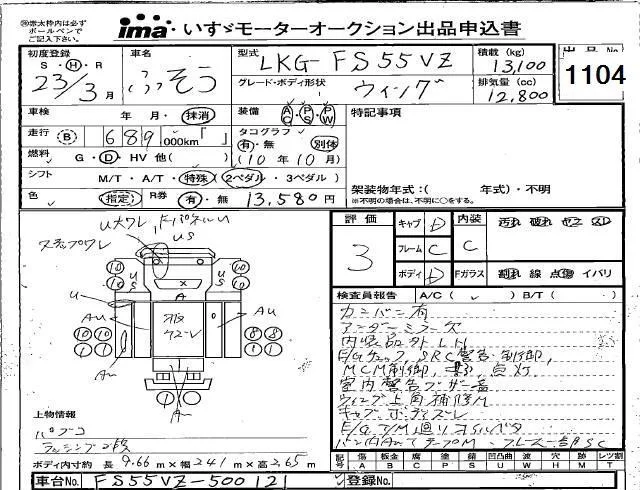 ※赤太枠内は必ずボールペンでご記入下さい。
ima いすゞモーターオークション出品申込書
出品No. 1104
初度登録 S・H・R 23/3月
車名 ふそう
型式 LKG-FS55VZ
積載(kg) 13,100
グレード・ボディ形状 ウィング
排気量(cc) 12,800
車検 年・月・抹消
装備 AC・PS・PW
特記事項
走行 B 689 000km「 」
タコグラフ 有・無 別体
燃料 G・D・HV 他( )
(10年10月)
シフト M/T・A/T・特殊(2ペダル・3ペダル)
架装物年式:( 年式)・不明
※不明の場合は、不明に○をする。
色 指定
R券 有・無 13,580円
評価 3
キャブ D
内装 C
汚れ 破れ ヤニ スレ
フレーム C
ボディ D
Fガラス 割れ 線 点傷 イバリ
検査員報告 A/C( ) B/T( )
カンバン有
アンダーミラー欠
内装品外レ
E/Gチェック, SRC警告・制御,
MCM制御, 点灯
室内警告ブザー
ウィング上角補修M
キャブボディズレ
E/G T/M廻りヨゴレ
U大ワレ
ステップワレ
US
U
S
A
AU
Au
10 10
10 10
8 8
1 1
上物情報
パブコ
ラッシング2段
ボディ内寸約 長9.66m×幅2.41m×高2.65m
記号 傷 板金 腐 塗 錆 凹凸曲 波 穴 跡 レンズ割
A B C P S U W H M T
車台No. FS55VZ-500121
登録No.